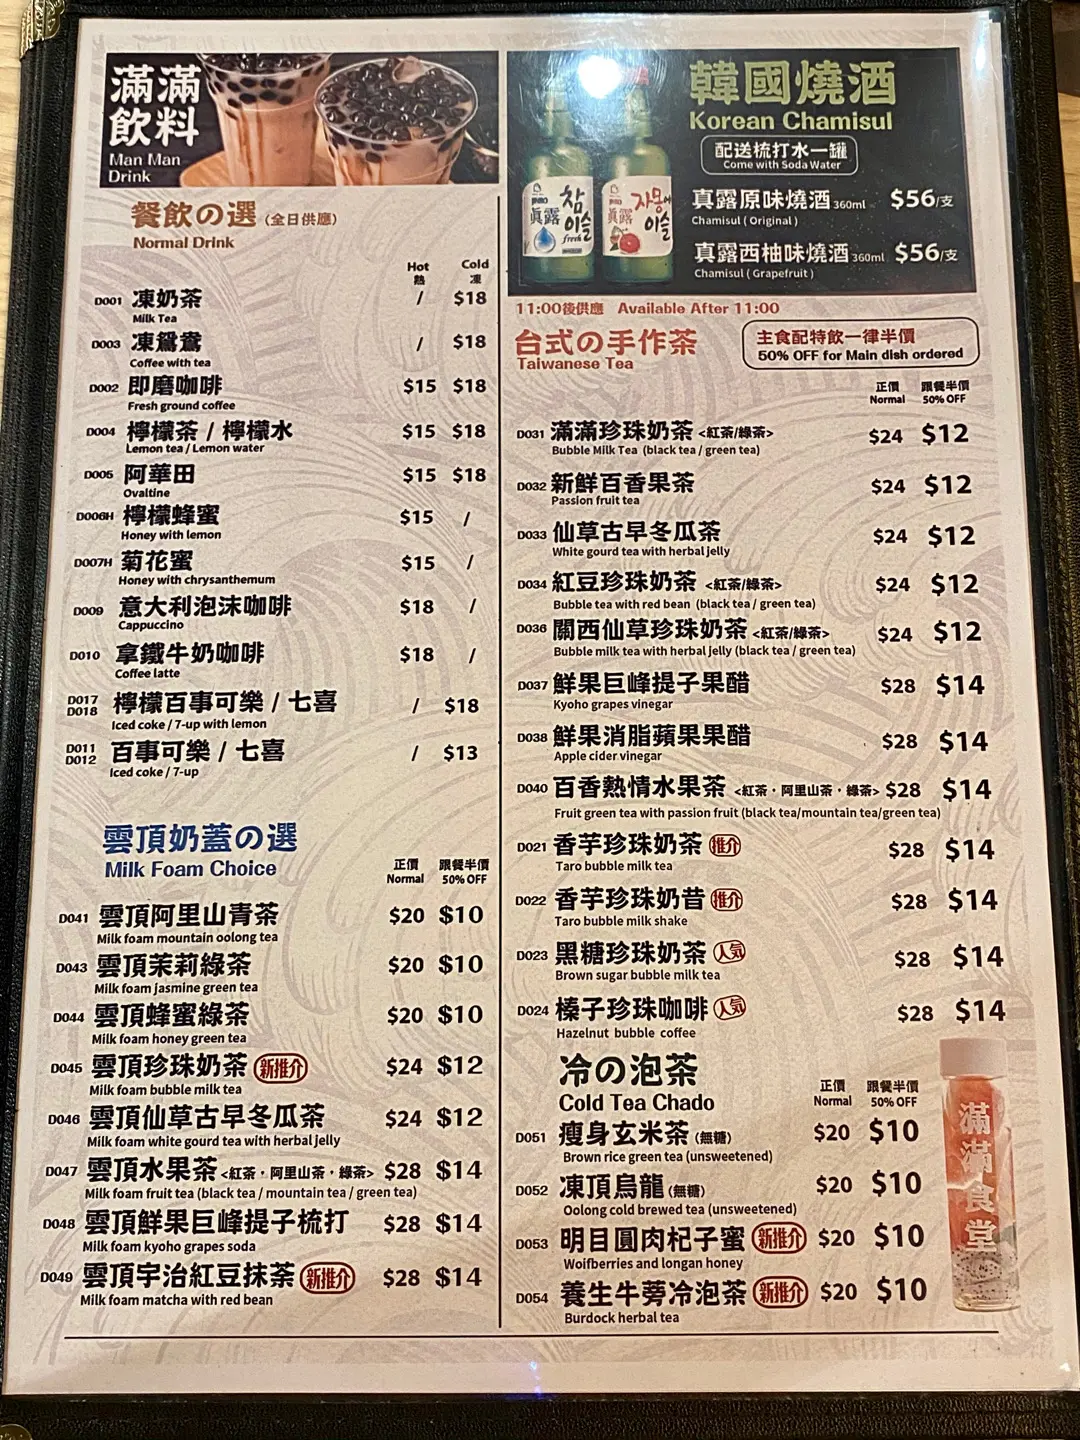 滿滿
飲料
Man Man
Drink
餐飲の選 (全日供應)
Normal Drink
Hot Cold
熱 凍
D001 凍奶茶 / $18
Milk Tea
D003 凍鴛鴦 / $18
Coffee with tea
D002 即磨咖啡 $15 $18
Fresh ground coffee
D004 檸檬茶 / 檸檬水 $15 $18
Lemon tea / Lemon water
D005 阿華田 $15 $18
Ovaltine
D006H 檸檬蜂蜜 $15 /
Honey with lemon
D007H 菊花蜜 $15 /
Honey with chrysanthemum
D009 意大利泡沫咖啡 $18 /
Cappuccino
D010 拿鐵牛奶咖啡 $18 /
Coffee latte
D017
D018 檸檬百事可樂 / 七喜 / $18
Iced coke / 7-up with lemon
D011
D012 百事可樂 / 七喜 / $13
Iced coke / 7-up
雲頂奶蓋の選
Milk Foam Choice
正價 跟餐半價
Normal 50% OFF
D041 雲頂阿里山青茶 $20 $10
Milk foam mountain oolong tea
D043 雲頂茉莉綠茶 $20 $10
Milk foam jasmine green tea
D044 雲頂蜂蜜綠茶 $20 $10
Milk foam honey green tea
D045 雲頂珍珠奶茶 新推介 $24 $12
Milk foam bubble milk tea
D046 雲頂仙草古早冬瓜茶 $24 $12
Milk foam white gourd tea with herbal jelly
D047 雲頂水果茶 <紅茶・阿里山茶・綠茶> $28 $14
Milk foam fruit tea (black tea / mountain tea / green tea)
D048 雲頂鮮果巨峰提子梳打 $28 $14
Milk foam kyoho grapes soda
D049 雲頂宇治紅豆抹茶 新推介 $28 $14
Milk foam matcha with red bean
韓國燒酒
Korean Chamisul
配送梳打水一罐
Come with Soda Water
真露原味燒酒 360ml $56/支
Chamisul ( Original )
真露西柚味燒酒 360ml $56/支
Chamisul ( Grapefruit )
眞露 참이슬 fresh
眞露 자몽에이슬
11:00後供應 Available After 11:00
台式の手作茶
Taiwanese Tea
主食配特飲一律半價
50% OFF for Main dish ordered
正價 跟餐半價
Normal 50% OFF
D031 滿滿珍珠奶茶 <紅茶/綠茶> $24 $12
Bubble Milk Tea (black tea / green tea)
D032 新鮮百香果茶 $24 $12
Passion fruit tea
D033 仙草古早冬瓜茶 $24 $12
White gourd tea with herbal jelly
D034 紅豆珍珠奶茶 <紅茶/綠茶> $24 $12
Bubble tea with red bean (black tea / green tea)
D036 關西仙草珍珠奶茶 <紅茶/綠茶> $24 $12
Bubble milk tea with herbal jelly (black tea / green tea)
D037 鮮果巨峰提子果醋 $28 $14
Kyoho grapes vinegar
D038 鮮果消脂蘋果果醋 $28 $14
Apple cider vinegar
D040 百香熱情水果茶 <紅茶・阿里山茶・綠茶> $28 $14
Fruit green tea with passion fruit (black tea/mountain tea/green tea)
D021 香芋珍珠奶茶 推介 $28 $14
Taro bubble milk tea
D022 香芋珍珠奶昔 推介 $28 $14
Taro bubble milk shake
D023 黑糖珍珠奶茶 人気 $28 $14
Brown sugar bubble milk tea
D024 榛子珍珠咖啡 人気 $28 $14
Hazelnut bubble coffee
冷の泡茶
Cold Tea Chado
正價 跟餐半價
Normal 50% OFF
D051 瘦身玄米茶 (無糖) $20 $10
Brown rice green tea (unsweetened)
D052 凍頂烏龍 (無糖) $20 $10
Oolong cold brewed tea (unsweetened)
D053 明目圓肉杞子蜜 新推介 $20 $10
Woifberries and longan honey
D054 養生牛蒡冷泡茶 新推介 $20 $10
Burdock herbal tea
滿滿食堂